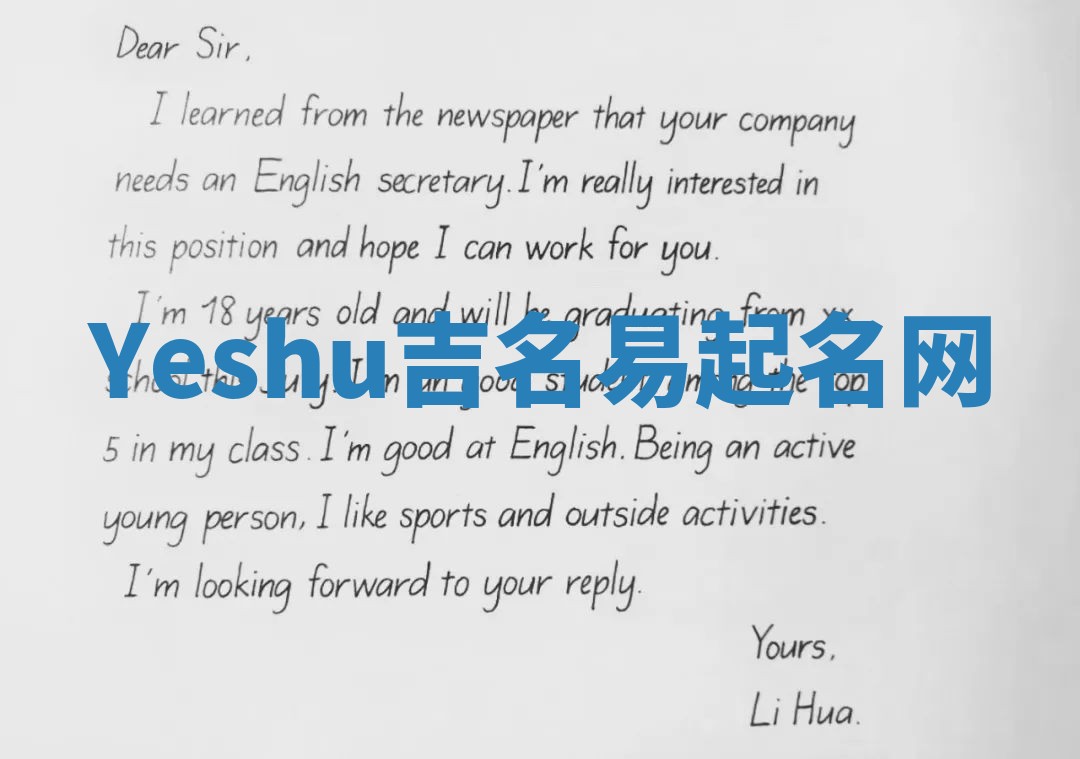 Dear Sir,
I learned from the newspaper that your company
needs an English secretary. I'm really interested in
this position and hope I can work for you.
I'm 18 years old and will be graduating from xx
Yeshu吉名易起名网
school this July. I'm an good student the top
5 in my class. I'm good at English. Being an active
young person, I like sports and outside activities.
I'm looking forward to your reply.
Yours,
Li Hua.